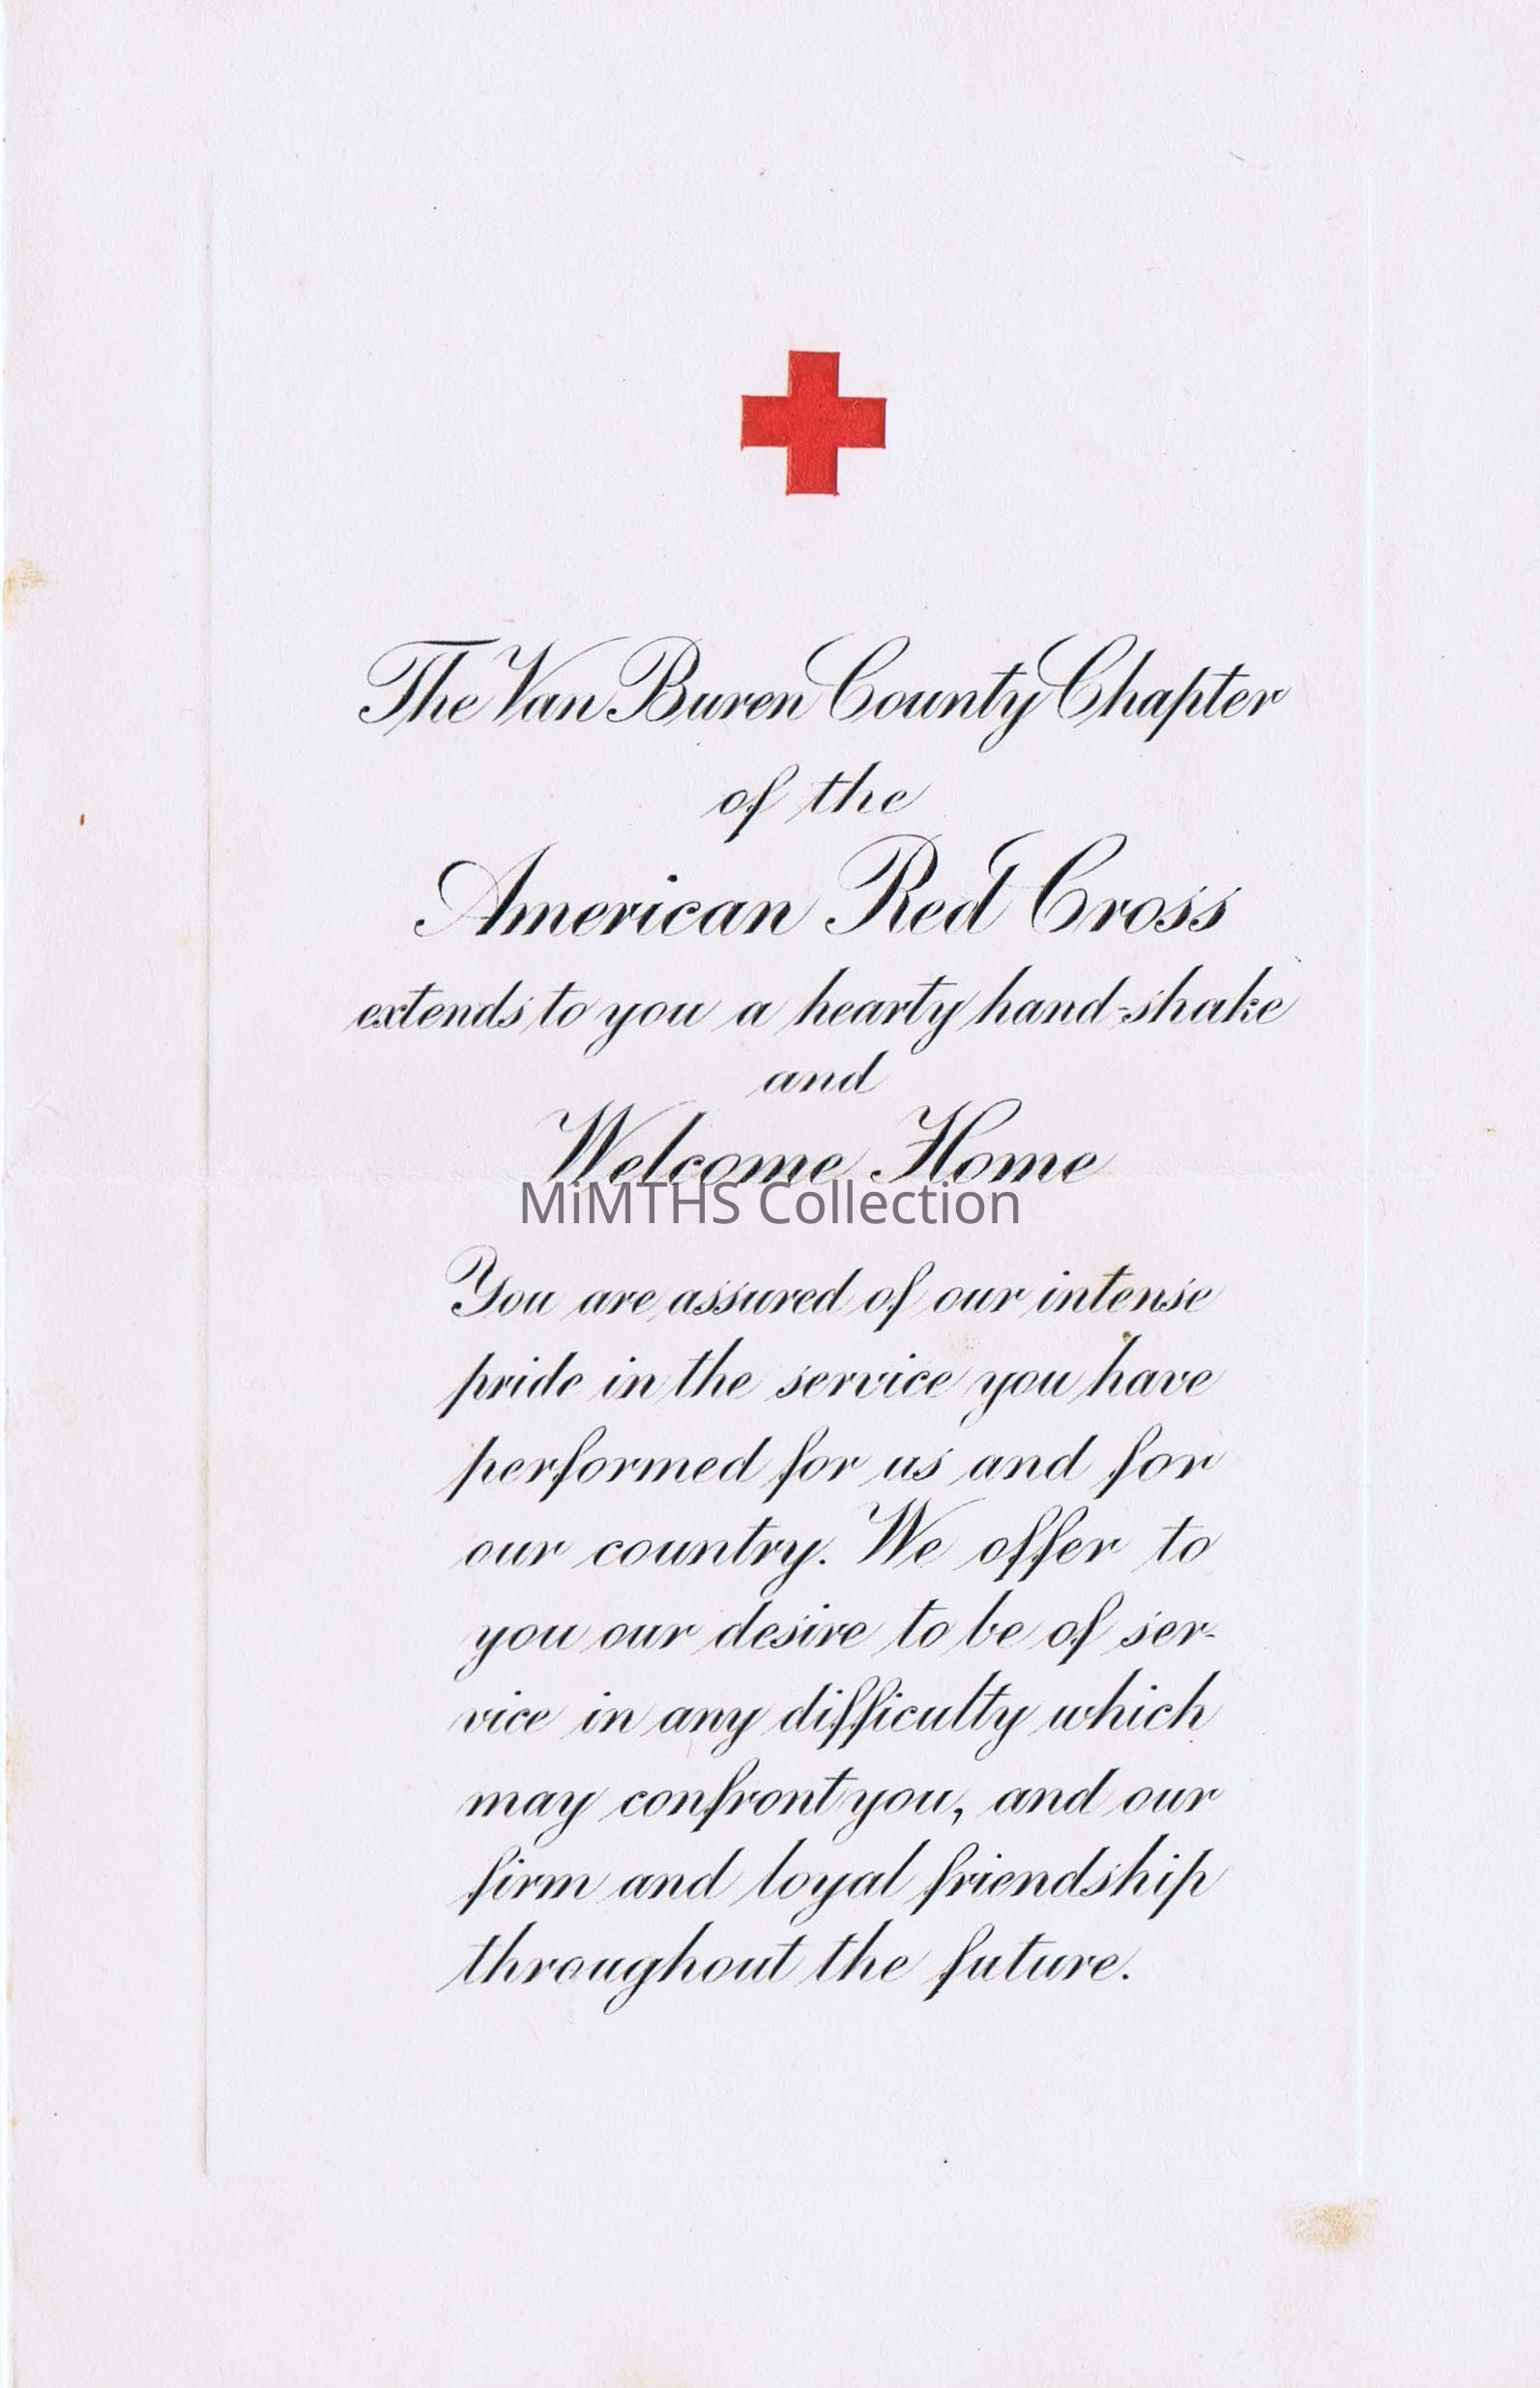 The Van Buren County Chapter
of the
American Red Cross
extends to you a hearty hand-shake
and
Welcome Home
MiMTHS Collection
You are assured of our intense
pride in the service you have
performed for us and for
our country. We offer to
you our desire to be of ser-
vice in any difficulty which
may confront you, and our
firm and loyal friendship
throughout the future.